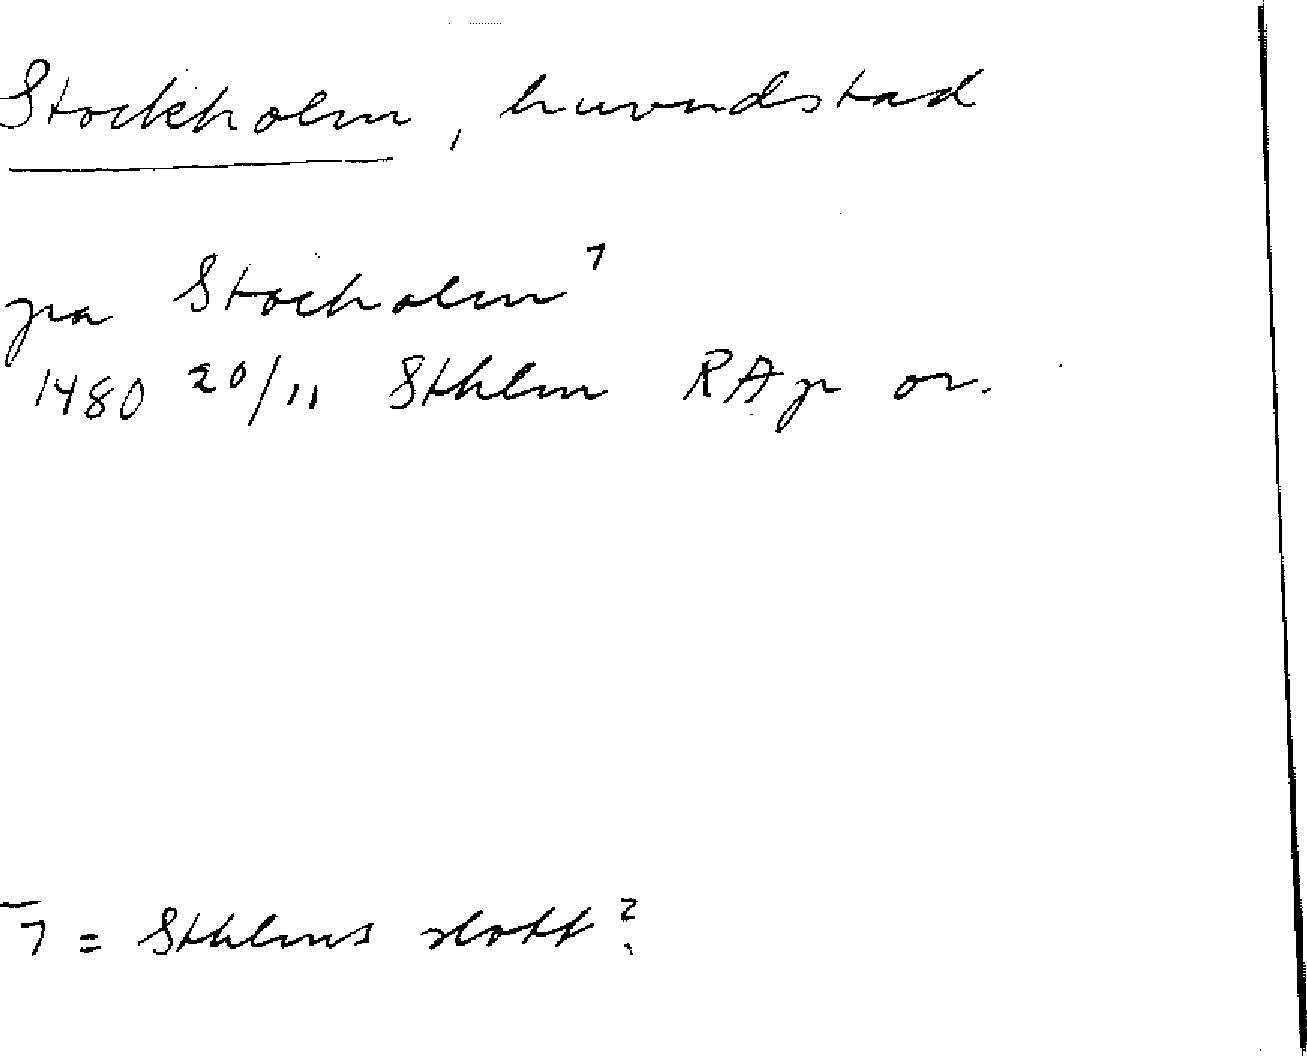 Stockholm, huvudstad
pa Stocholm 7
1480 20/11 Sthlm RAp or.
7 = Sthlms slott?